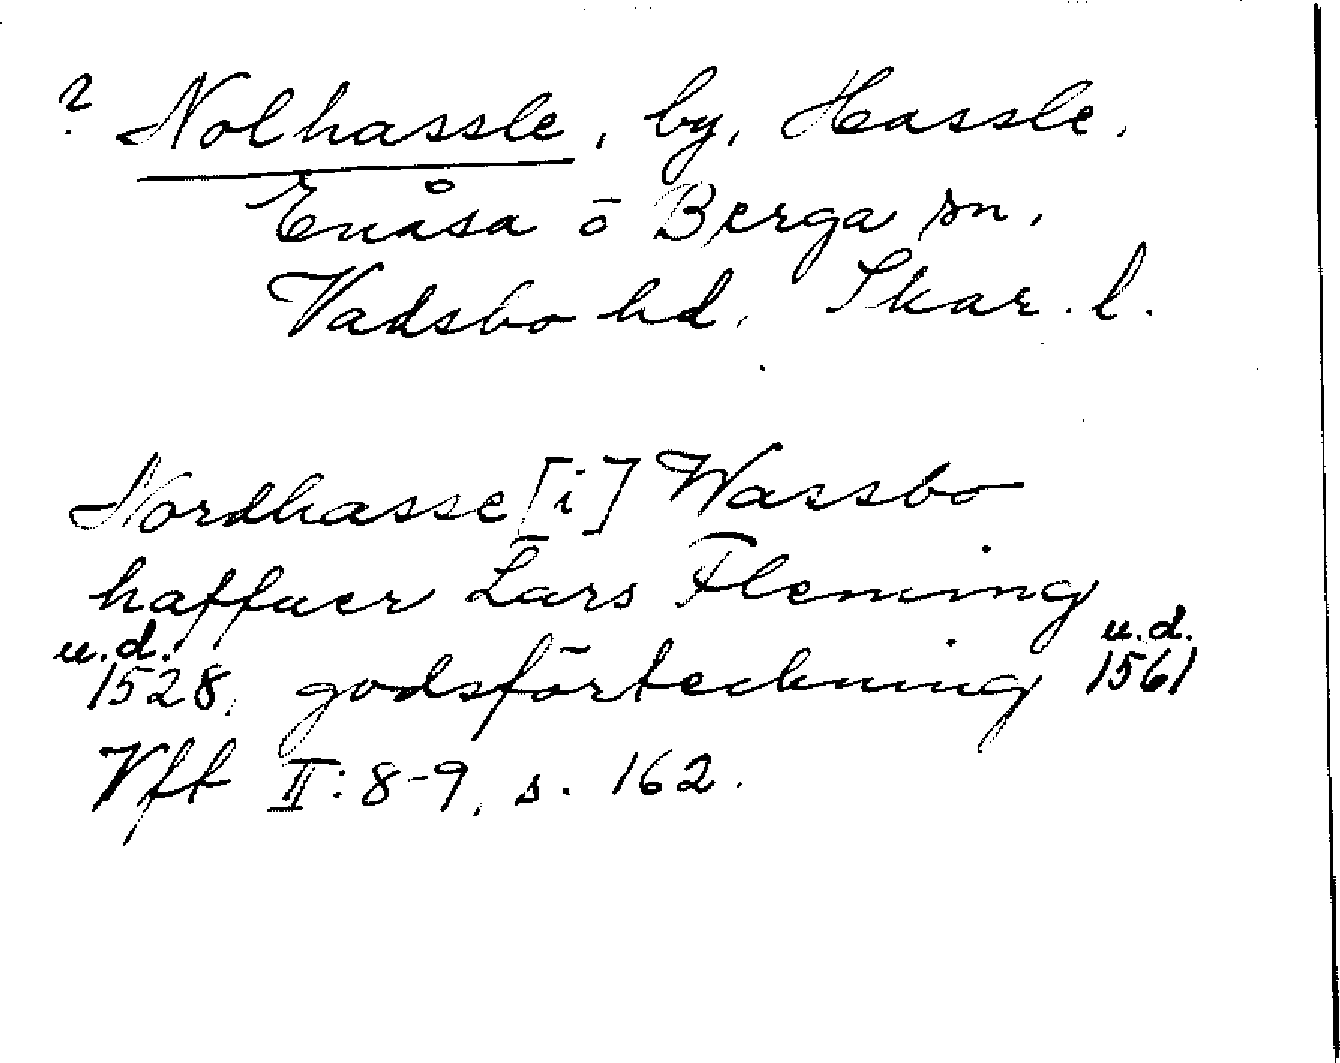 ? Nolhassle, by, Hassle,
Enåsa o Berga sn,
Vadsbo hd, Skar. l.
Nordhasse [i] Wassbo
haffuer Lars Fleming
u.d. u.d.
1528, godsförteckning 1561
Vft II: 8-9, s. 162.